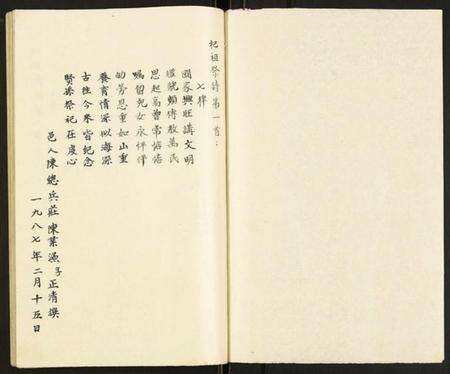 祀祖祭詩第一首：
七律
國家興旺講文明
繼統賴傳教萬民
思起高曾常掂掂
囑留兒女永伴伴
劬勞恩重如山重
養育情深似海深
古往今來皆紀念
賢崇祭祀在虔心
邑人陳總兵莊陳葉源子正清撰
一九八七年二月十五日